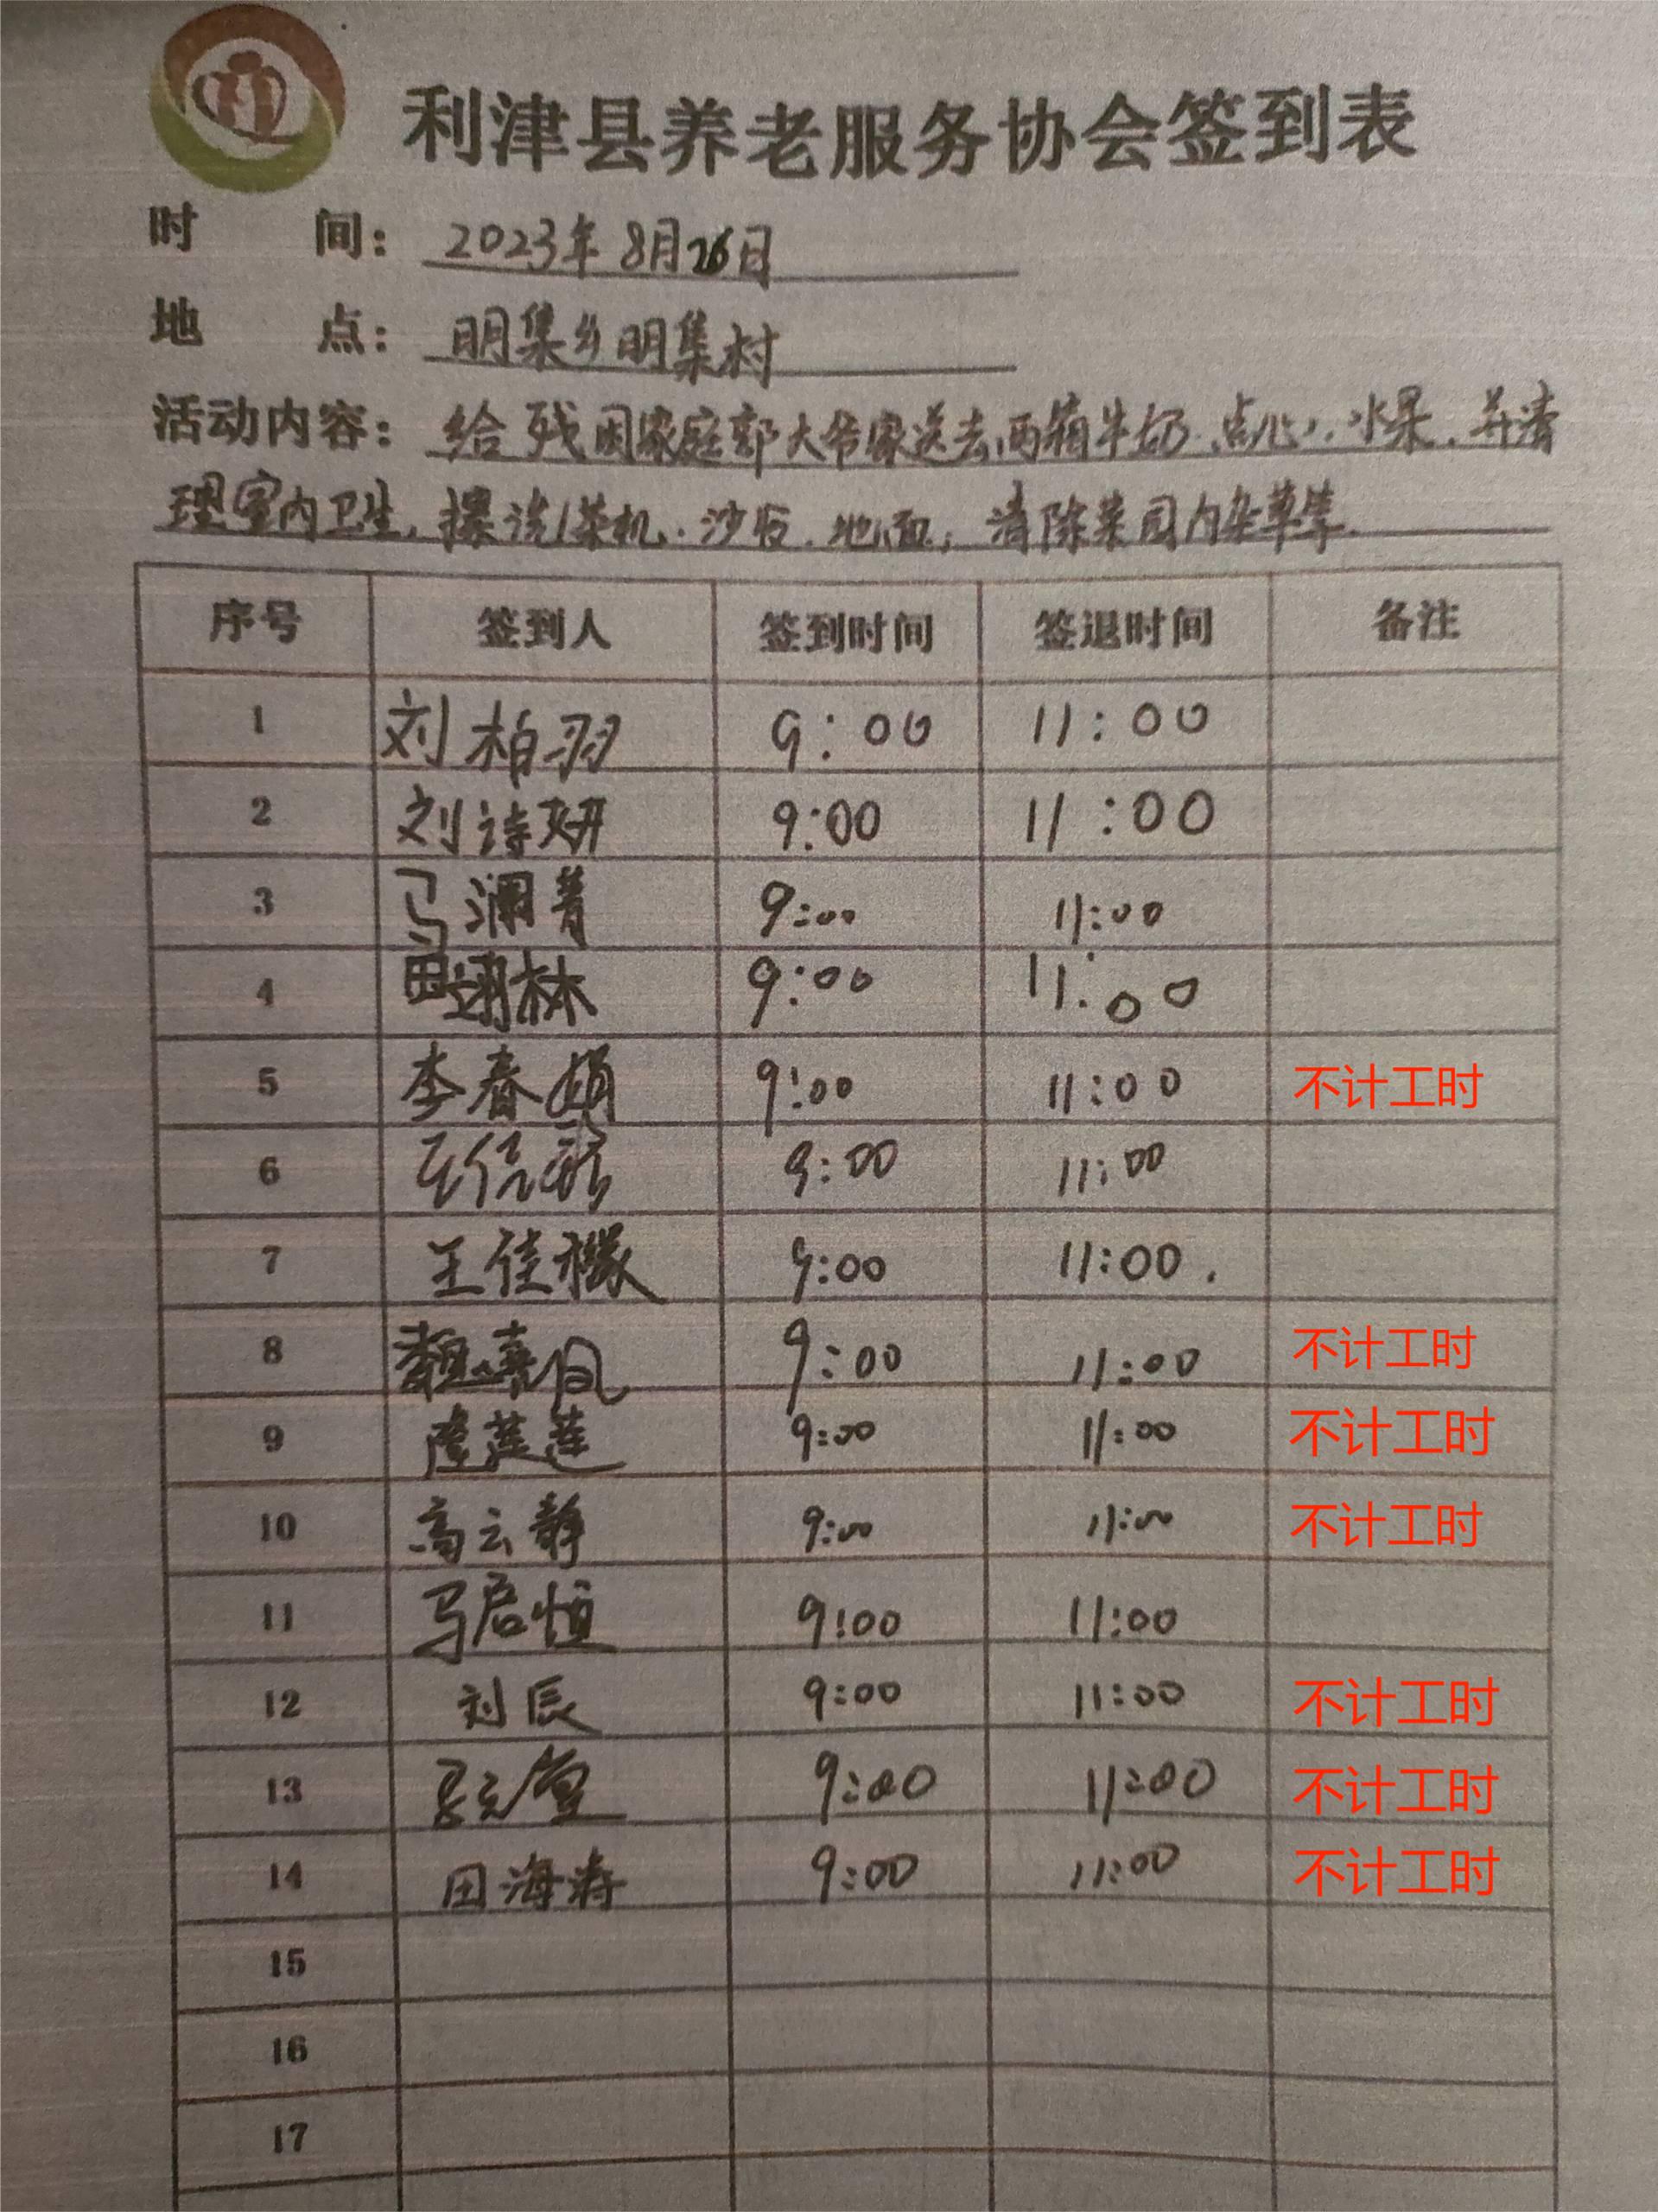 利津县养老服务协会签到表
时 间： 2023年8月26日
地 点： 明集乡明集村
活动内容： 给残困家庭郭大爷家送去两箱牛奶、点心、水果，并清
理室内卫生，擦洗茶机、沙发、地面，清除菜园内杂草等.
序号 签到人 签到时间 签退时间 备注
1 刘柏羽 9:00 11:00
2 刘诗妍 9:00 11:00
3 马澜菁 9:00 11:00
4 田翊林 9:00 11:00
5 李春娟 9:00 11:00 不计工时
6 9:00 11:00
7 王佳 9:00 11:00.
8 9:00 11:00 不计工时
9 9:00 11:00 不计工时
10 高云静 9:00 11:00 不计工时
11 马启恒 9:00 11:00
12 刘辰 9:00 11:00 不计工时
13 9:00 11:00 不计工时
14 田海涛 9:00 11:00 不计工时
15
16
17